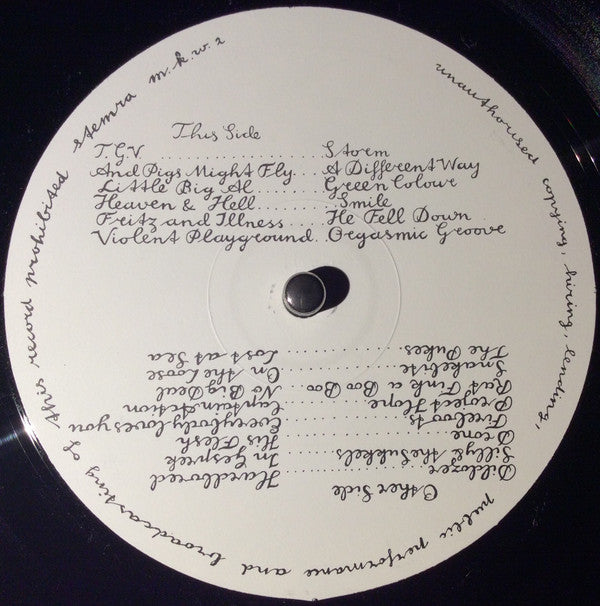 This Side
T.G.V. . . . . . . . . . . . . . . . Storm
And Pigs Might Fly . . . . A Different Way
Little Big Al. . . . . . . . . . Green Colour
Heaven & Hell . . . . . . . . . Smile
Fritz and Illness . . . . He Fell Down
Violent Playground . . Orgasmic Groove
Other Side
Silly & the Sukkels . . . . In Gesprek
Drone . . . . . . . . . . . His Flesh
Everybody loves you
Project Hope . . . . . Captain Action
Rat Fink a Boo Boo . . . No Big Deal
Snakebite . . . . . . . On the Loose
The Pukes . . . . . . . . . . Lost at Sea
unauthorised copying, hiring, lending, public performance and broadcasting of this record prohibited stemra m.k.w. 2